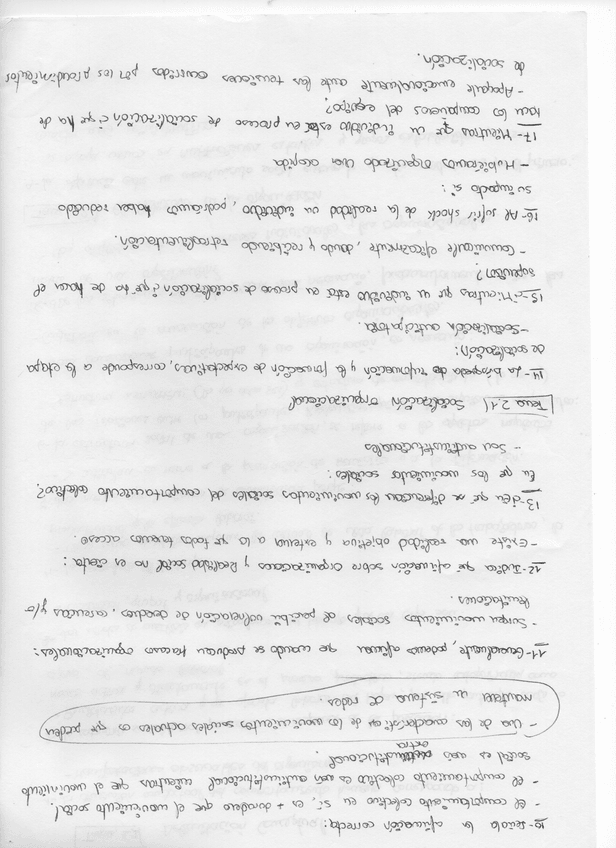 10- Señala la afirmación correcta:
- El comportamiento colectivo en sí es + duradero que el movimiento social.
- El comportamiento colectivo es antiinstitucional mientras que el movimiento
social es extrainstitucional.
- Una de las características de los movimientos sociales actuales es que pueden
mantener un sistema de redes.
11- Generalmente, podemos afirmar que cuando se producen fracasos organizacionales:
- Surgen movimientos sociales de vulneración de derechos, carencias y/o
limitaciones.
12- Indica qué afirmación sobre Organizaciones y Realidad Social no es cierta:
- Existe una realidad objetiva y externa a la q todos tenemos acceso
13- ¿En qué se diferencian los movimientos sociales del comportamiento colectivo?
En que los movimientos sociales:
- Son antiinstitucionales
Tema 2.1 Socialización organizacional
14- La búsqueda de información y la formación de expectativas, corresponde a la etapa
de socialización:
- Socialización anticipatoria.
15- ¿Mientras que un individuo está en proceso de socialización ¿qué no ha de hacer el
supervisor?
- Comunicarle eficazmente, dando y recibiendo retroalimentación.
16- Al sufrir shock de la realidad un individuo, podríamos haber reducido
su impacto si:
- Hubiéramos organizado una acogida
17- Mientras que un individuo está en proceso de socialización ¿qué ha de
hacer los compañeros del equipo?
- Apoyarle emocionalmente ante las tensiones ocurridas por los procedimientos
de socialización.